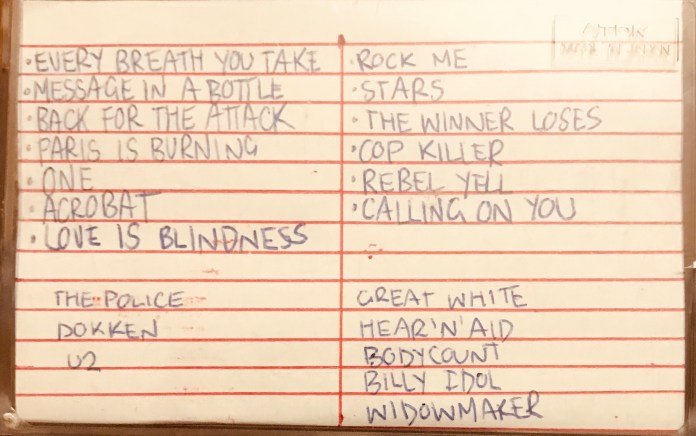 ·EVERY BREATH YOU TAKE
·MESSAGE IN A BOTTLE
·BACK FOR THE ATTACK
·PARIS IS BURNING
·ONE
·ACROBAT
·LOVE IS BLINDNESS
THE POLICE
DOKKEN
U2
·ROCK ME
·STARS
·THE WINNER LOSES
·COP KILLER
·REBEL YELL
·CALLING ON YOU
GREAT WHITE
HEAR'N'AID
BODYCOUNT
BILLY IDOL
WIDOWMAKER